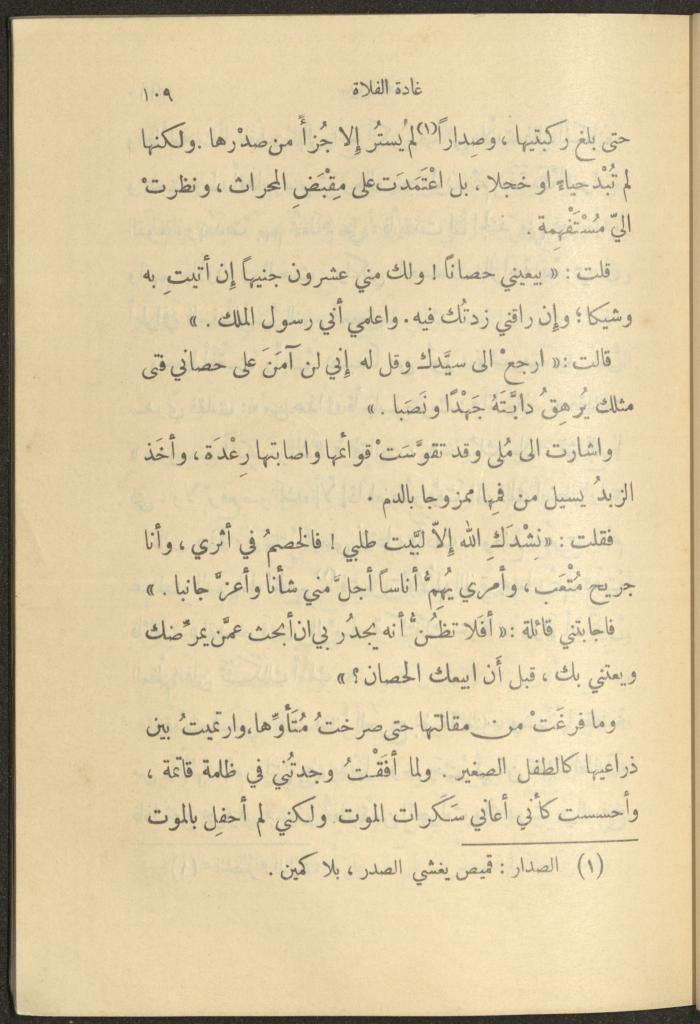 غادة الفلاة ١٠٩
حتى بلغ ركبتيها ، وصِداراً(١) لم يستُر إلا جُزأً من صدْرها . ولكنها
لم تُبْد حياءً او خجلا . بل اعْتَمَدَت على مِقْبَضِ المحراث ، ونظرتْ
اليّ مُسْتَفْهِمة .
قلت : « بيعيني حصاناً ! ولك مني عشرون جنيهاً إن أتيتِ به
وشيكا ؛ وإن راقني زدتُك فيه . واعلمي أني رسول الملك . »
قالت : « ارجعْ الى سيَّدك وقل له إني لن آمَنَ على حصاني فتى
مثلك يُرهِقُ دابَّتَهُ جَهْدًا ونَصَبا . »
واشارت الى مُلى وقد تقوَّسَتْ قوائمها واصابتها رِعْدَة ، وأخَذ
الزبدُ يسيل من فمِها ممزوجا بالدم .
فقلت : « نِشْدَكِ الله إلاّ لبَّيت طلبي ! فالخصمُ في أثري ، وأنا
جريح مُتْعَب ، وأمري يُهِمُّ أناساً أجلَّ مني شأنا وأعزَّ جانبا . »
فاجابتني قائلة : « أفَلا تظنُّ أنه يجدُر بي ان أبحث عمَّن يمرِّضك
ويعتني بك ، قبل أَن ابيعك الحصان ؟ »
وما فرغَتْ من مقالتها حتى صرختُ مُتَأوِّها، وارتميتُ بين
ذراعيها كالطفل الصغير . ولما أفَقْتُ وجدتُني في ظلمة قاتمة ،
وأحسست كأني أعاني سَكَرات الموت ولكني لم أحفِل بالموت
(١) الصدار : قميص يغشي الصدر ، بلا كمين .